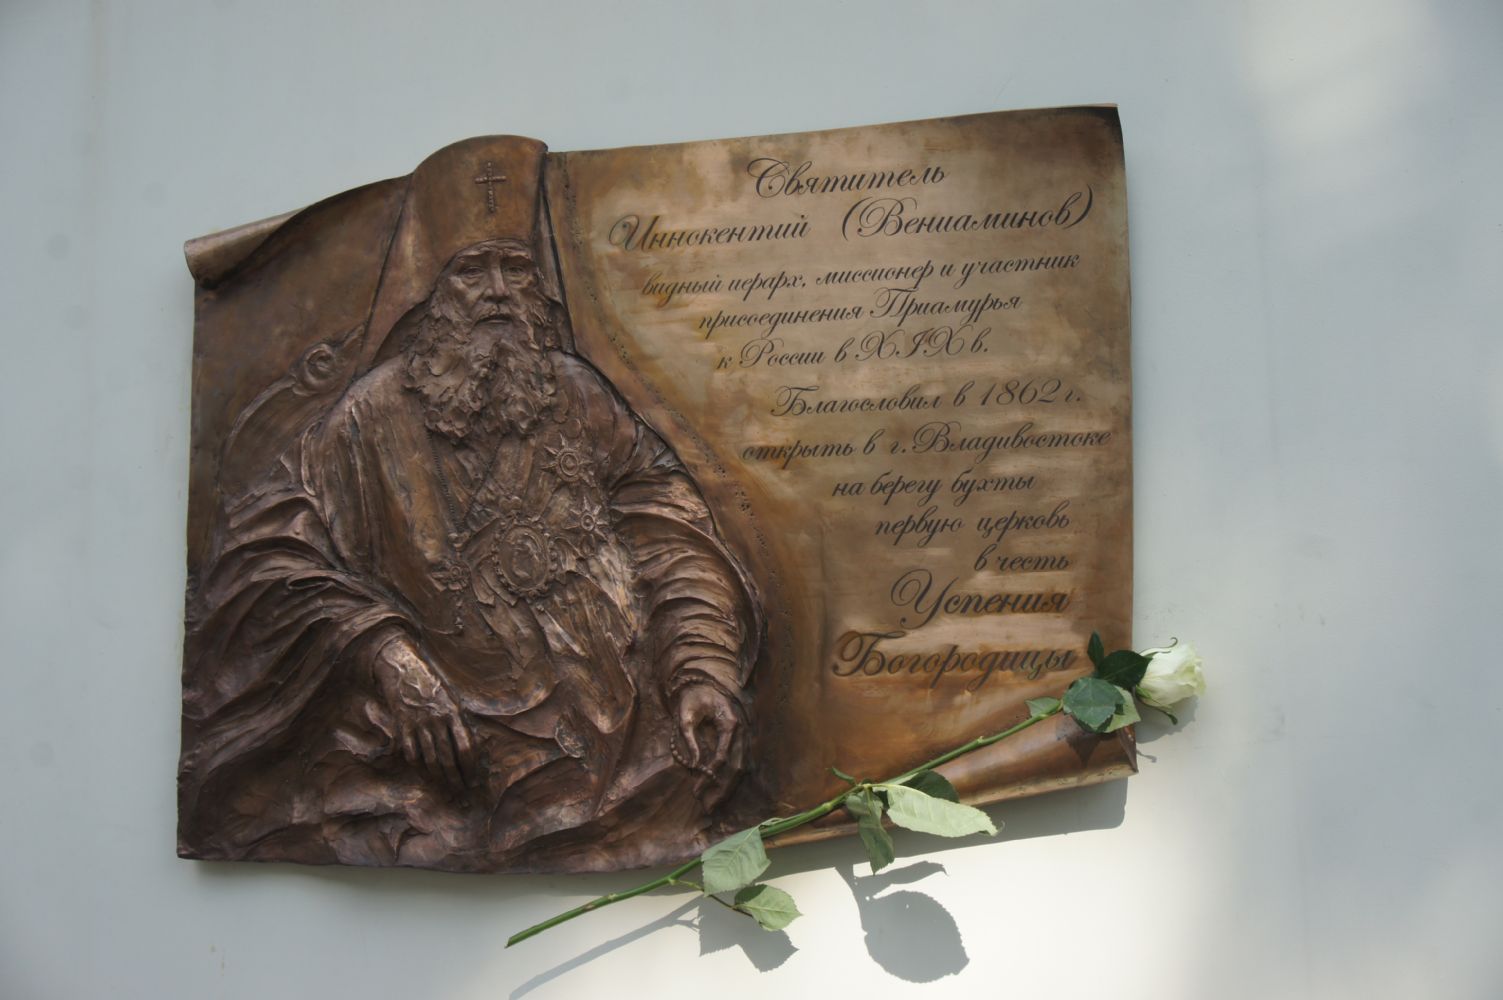 Святитель
Иннокентий (Вениаминов)
видный иерарх, миссионер и участник
присоединения Приамурья
к России в XIX в.
Благословил в 1862 г.
открыть в г. Владивостоке
на берегу бухты
первую церковь
в честь
Успения
Богородицы